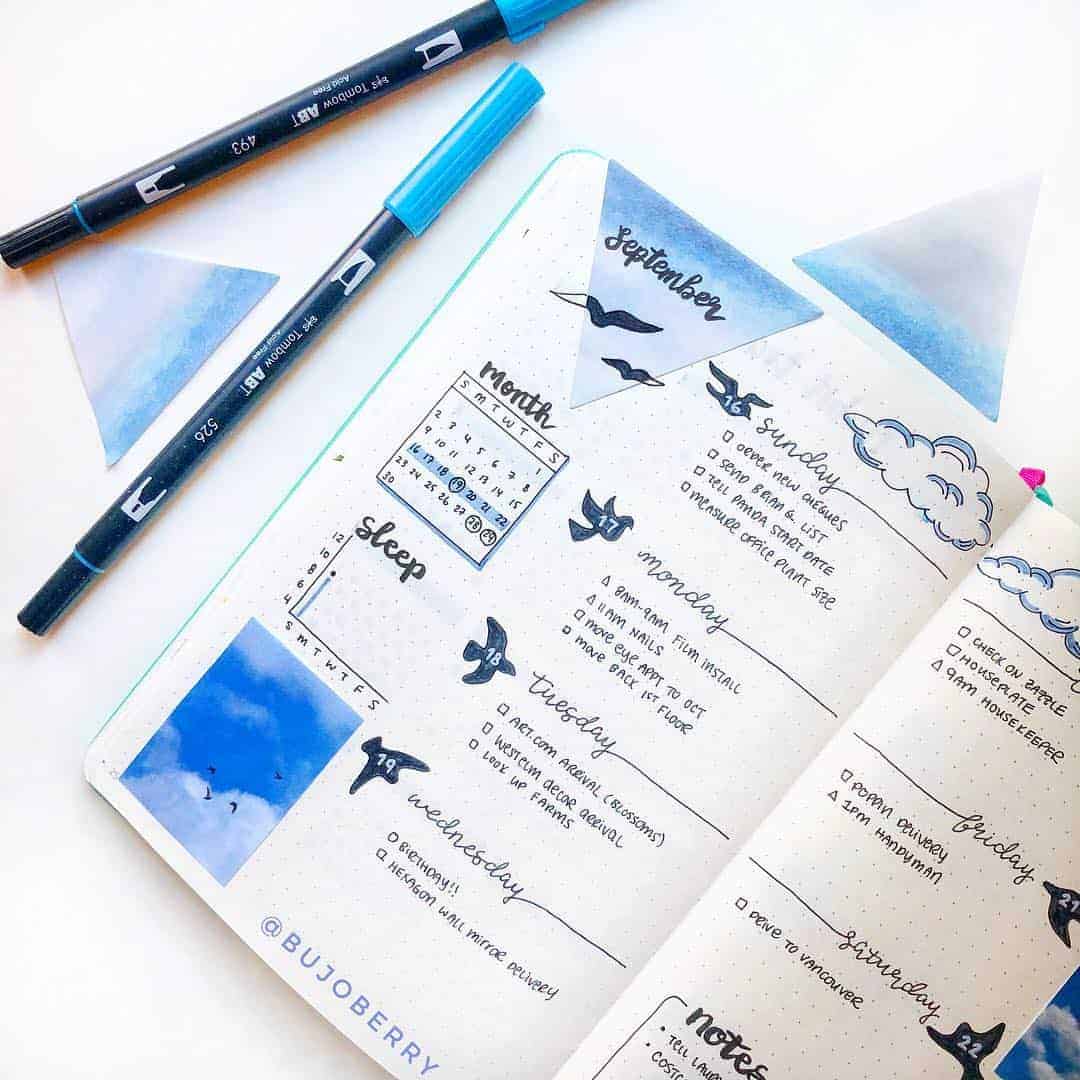 Tombow ABT
Acid Free
493
Tombow ABT
Acid Free
526
September
month
S M T W T F S
1
2 3 4 5 6 7 8
9 10 11 12 13 14 15
16 17 18 19 20 21 22
23 24 25 26 27 28 29
30
sleep
12
10
8
6
4
S M T W T F S
16
sunday
ORDER NEW CHEQUES
SEND BRIAN G. LIST
TELL PANDA START DATE
MEASURE OFFICE PLANT SIZE
17
monday
8AM-9AM FILM INSTALL
11AM NAILS
MOVE EYE APPT TO OCT
MOVE BACK 1ST FLOOR
18
tuesday
ART.COM ARRIVAL (BLOSSOMS)
WESTELM DECOR ARRIVAL
LOOK UP FARMS
19
wednesday
BIRTHDAY!!
HEXAGON WALL MIRROR DELIVERY
@BUJOBERRY
CHECK ON ZAZZLE
HOUSEPLATE
9AM HOUSEKEEPER
friday
21
POPPIN DELIVERY
1PM HANDYMAN
saturday
22
DRIVE TO VANCOUVER
notes
TELL